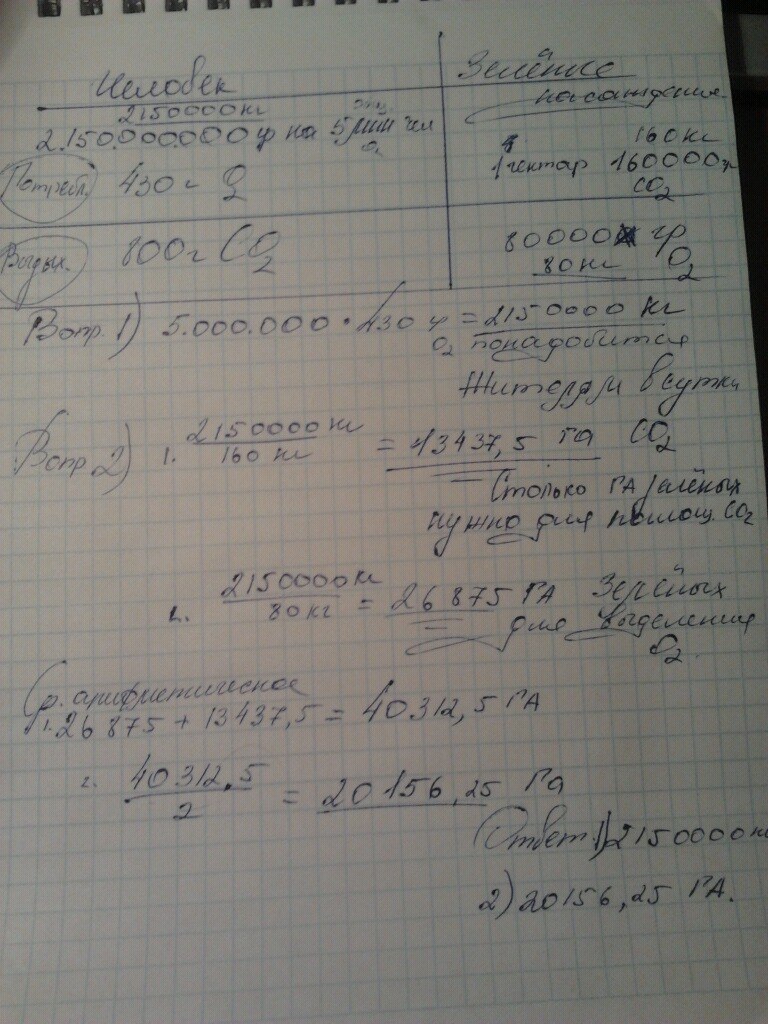 Человек
Зелёные
насаждения
2150000 кг
2.150.000.000 гр на 5 млн чел
O₂
160 кг
1 гектар 160000 гр
CO₂
Потребл.
430 г O₂
Выдых.
800 г CO₂
80000 гр
80 кг O₂
Вопр. 1) 5.000.000 · 430 гр = 2150000 кг
O₂ понадобится
жителям в сутки
Вопр 2) 1. 2150000 кг / 160 кг = 13437,5 га CO₂
Столько ГА зелёных
нужно для поглощ. CO₂
2. 2150000 кг / 80 кг = 26875 ГА Зелёных
для выделения
O₂.
Ср. арифметическое
1. 26875 + 13437,5 = 40312,5 ГА
2. 40312,5 / 2 = 20156,25 Га
Ответ: 1) 2150000 кг
2) 20156,25 ГА.